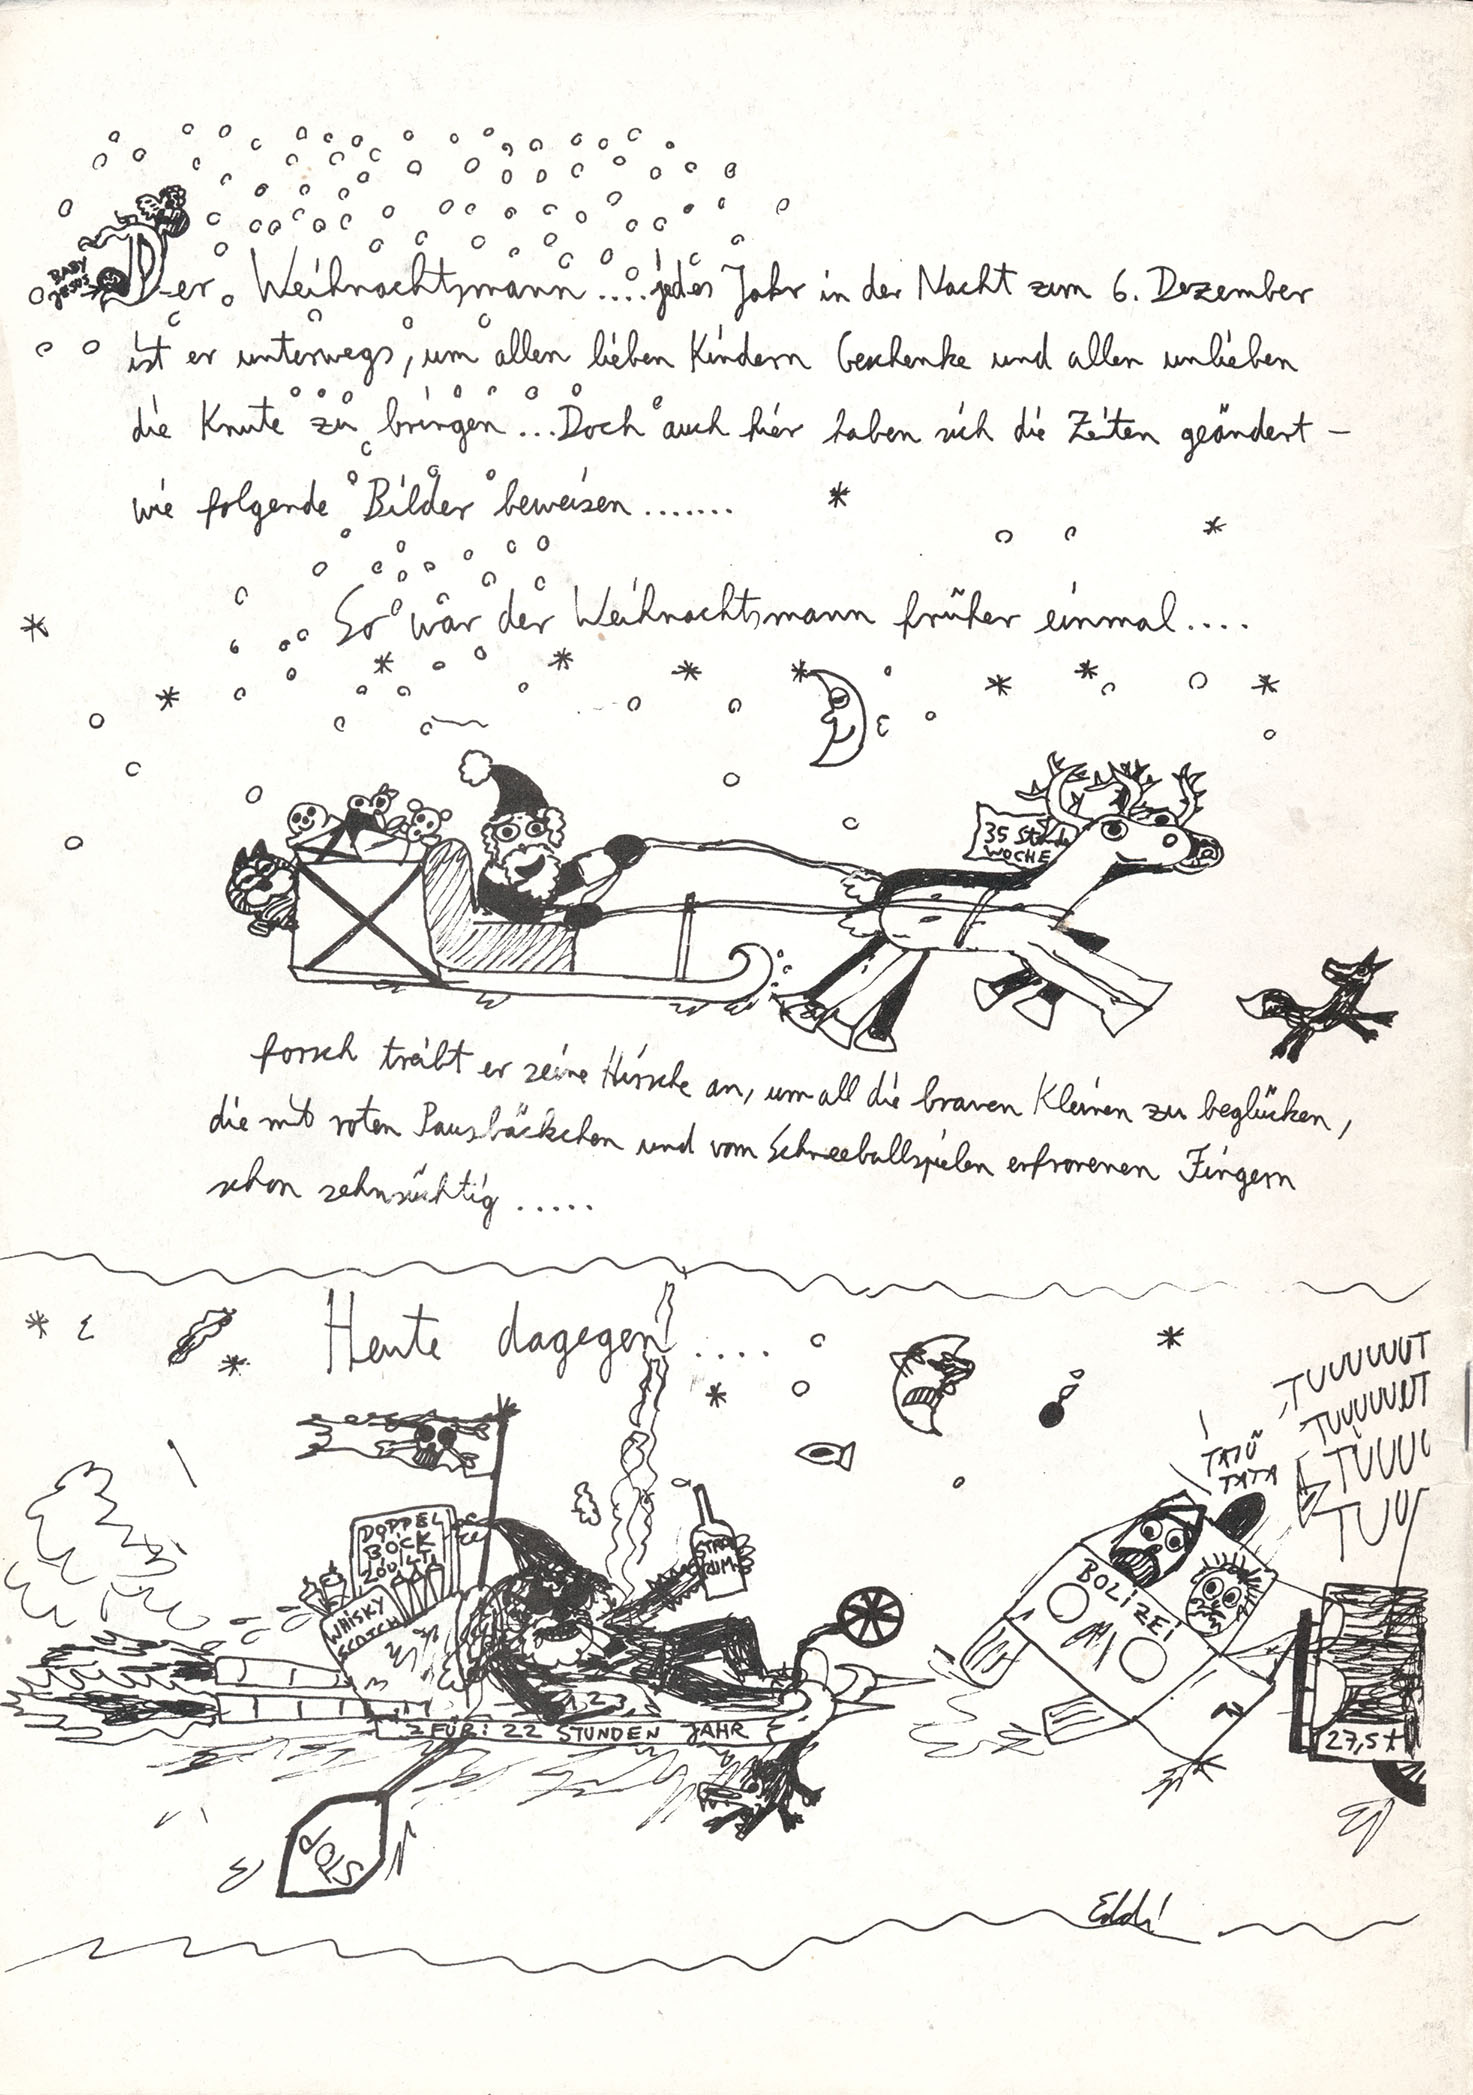 BABY
JESUS
Der Weihnachtsmann....jedes Jahr in der Nacht zum 6. Dezember
ist er unterwegs, um allen lieben Kindern Geschenke und allen unlieben
die Knute zu bringen...Doch auch hier haben sich die Zeiten geändert –
wie folgende Bilder beweisen.......
So war der Weihnachtsmann früher einmal....
35 Stunden
WOCHE
forsch treibt er seine Hirsche an, um all die braven Kleinen zu beglücken,
die mit roten Pausbäckchen und vom Schneeballspielen erfrorenen Fingern
schon sehnsüchtig.....
Heute dagegen....
TUUUUUUT
TUUUUUUT
TUUUU
TUU
TATÜ
TATA
DOPPEL
BOCK
WHISKY
SCOTCH
RUM
BOLIZEI
FÜR: 22 STUNDEN JAHR
27,5t
STOP
Eddi